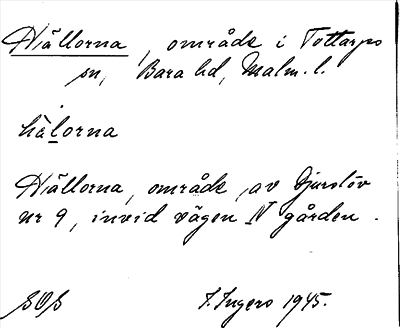 Hällorna, område i Tottarps
sn, Bara hd, Malm. l.
hälorna
Hällorna, område av Djurslöv
nr 9, invid vägen N gården.
SOS J. Ingers 1945.